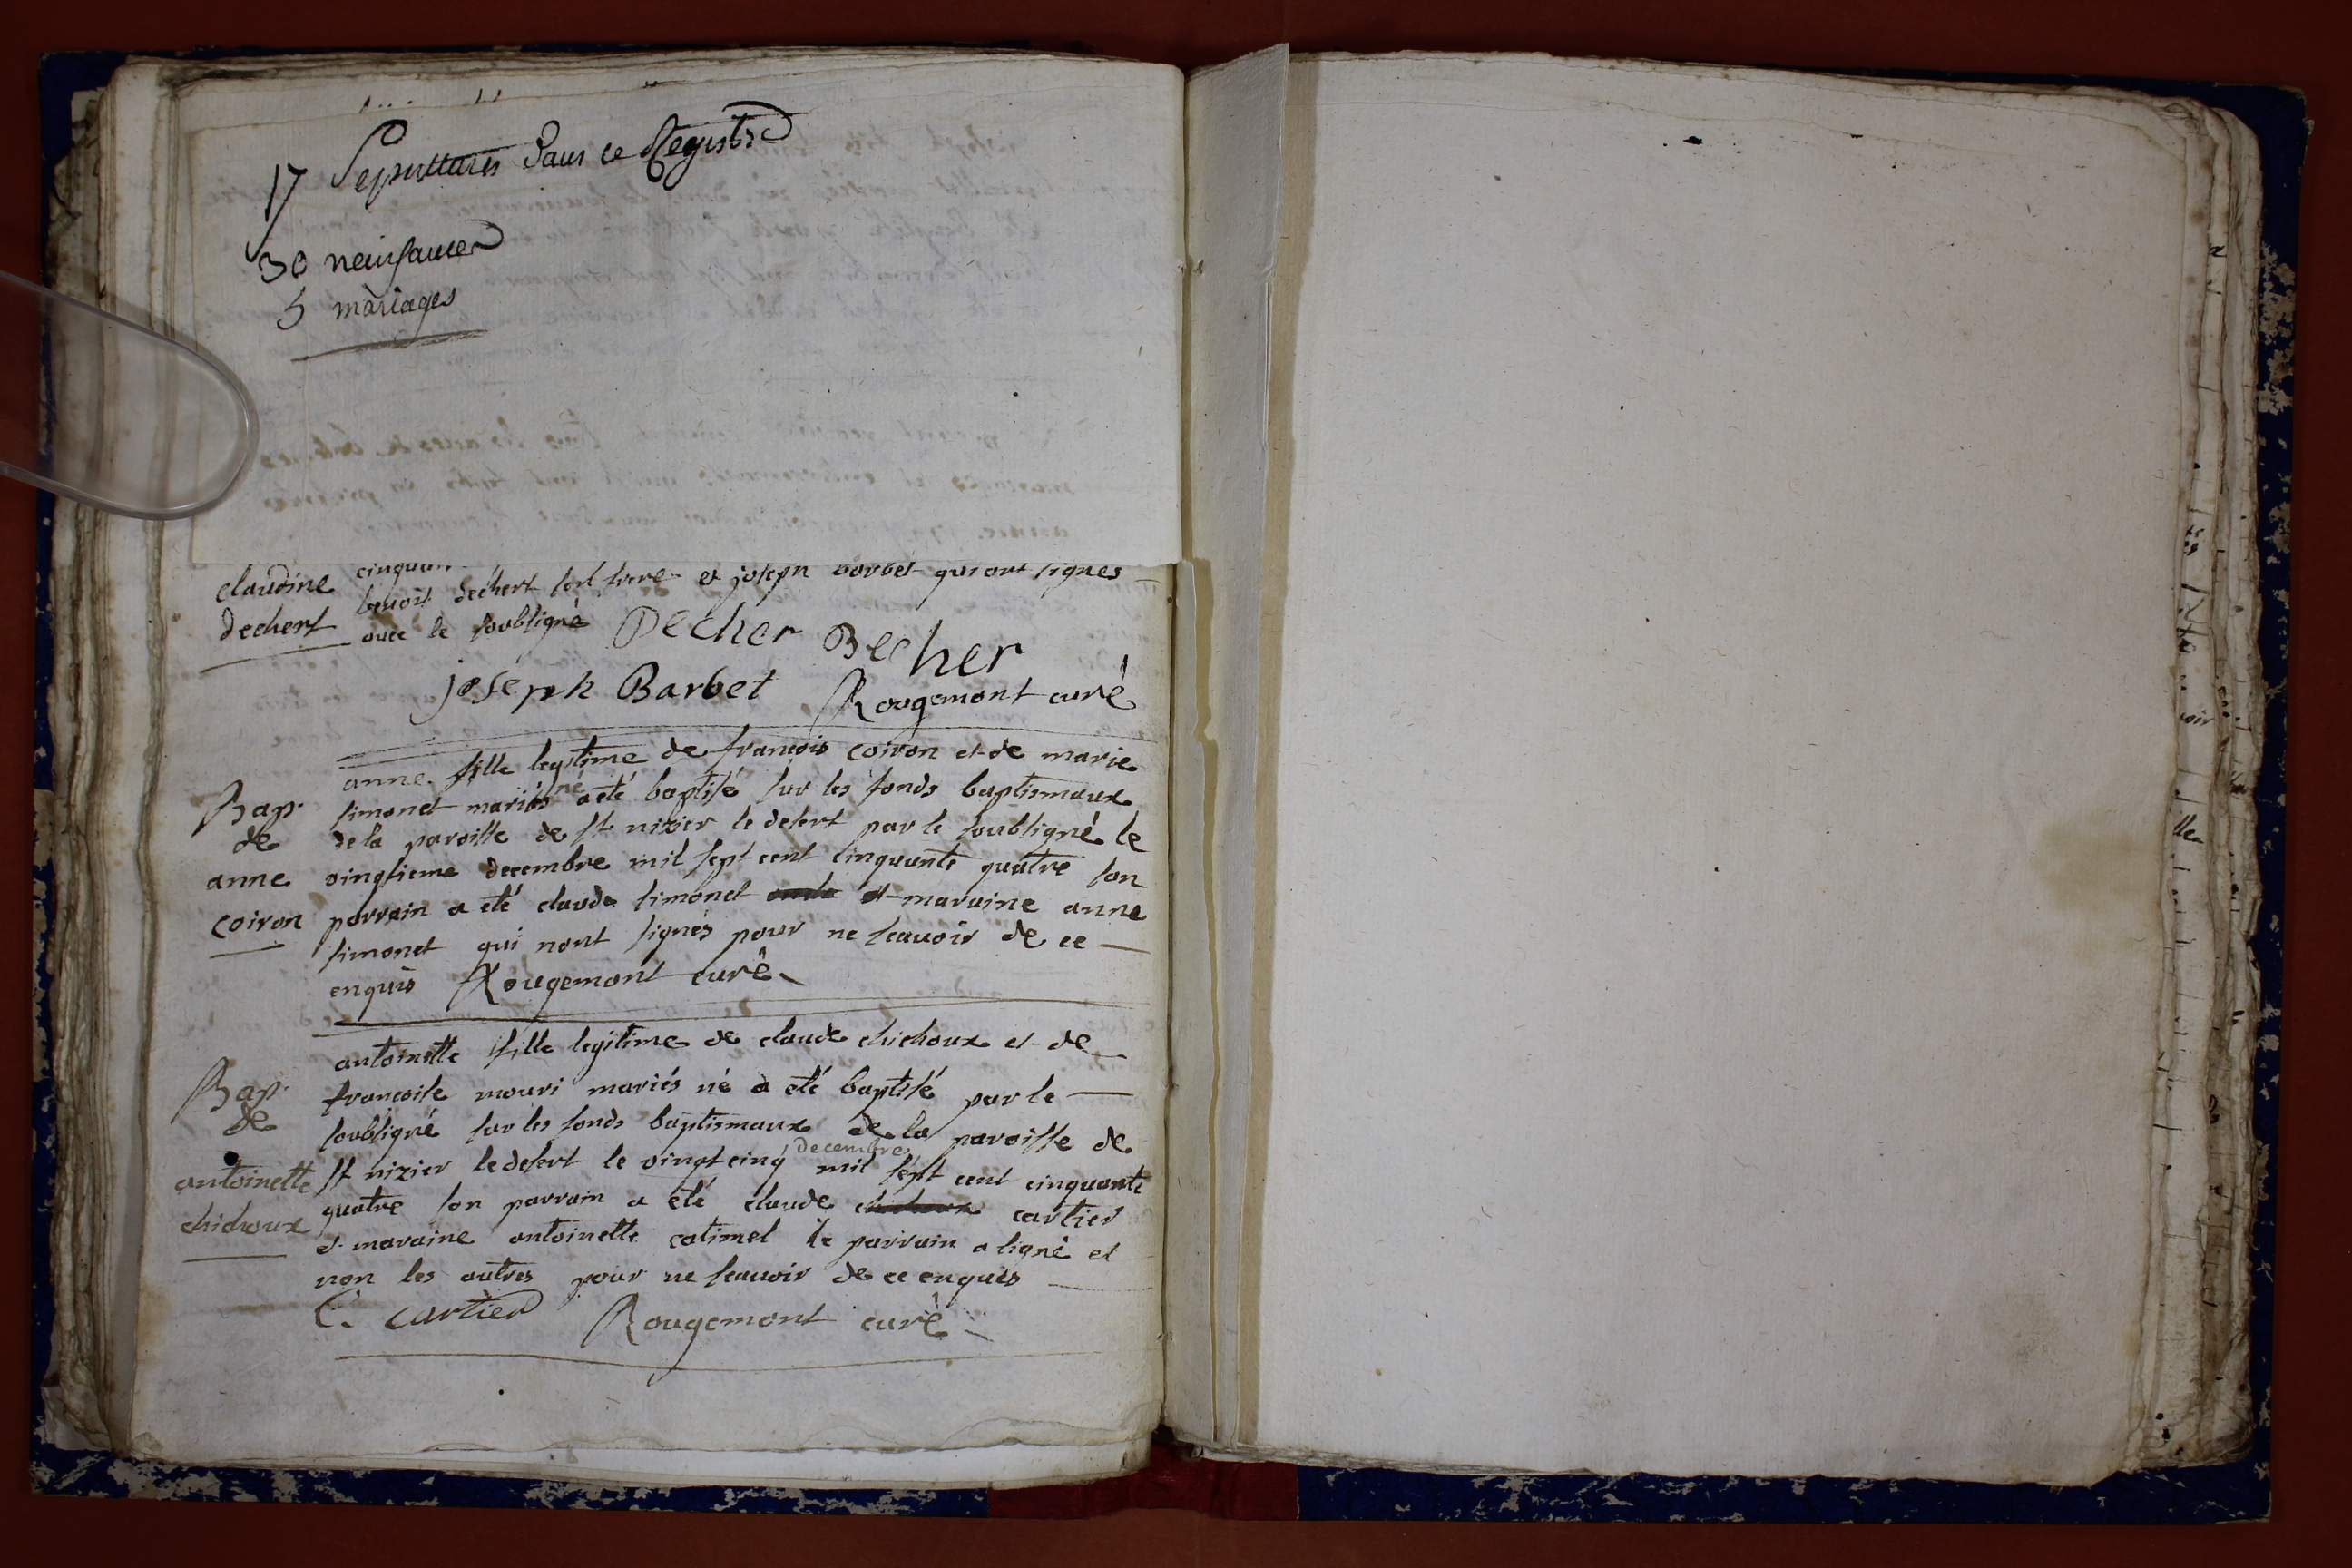 17 Sepulttures Dans ce Registre
30 neissances
5 mariages
claudine
dechert
cinquan
benoit dechert son frere et joseph barbet qui ont signes
avec le soubsigné Decher Becher
joseph Barbet Rougemont curé
Bap.
de
anne
coiron
anne fille legitime de françois coiron et de marie
simonet mariés né a eté baptisé sur les fonds baptismaux
de la paroisse de st nizier le desert par le soubsigné le
vingtieme decembre mil sept cent cinquante quatre son
parrain a eté claude simonet et maraine anne
simonet qui nont signés pour ne scavoir de ce
enquis Rougemont curé
Bap.
de
antoinette
chichoux
antoinette fille legitime de claude chichoux et de
francoise mouri mariés né a eté baptisé par le
soubsigné sur les fonds baptismaux de la paroisse de
st nizier le desert le vingt cinq decembre mil sept cent cinquante
quatre son parrain a eté claude chichoux cartier
et maraine antoinette catimel le parrain a signé et
non les autres pour ne scavoir de ce enquis
C. cartier Rougemont curé